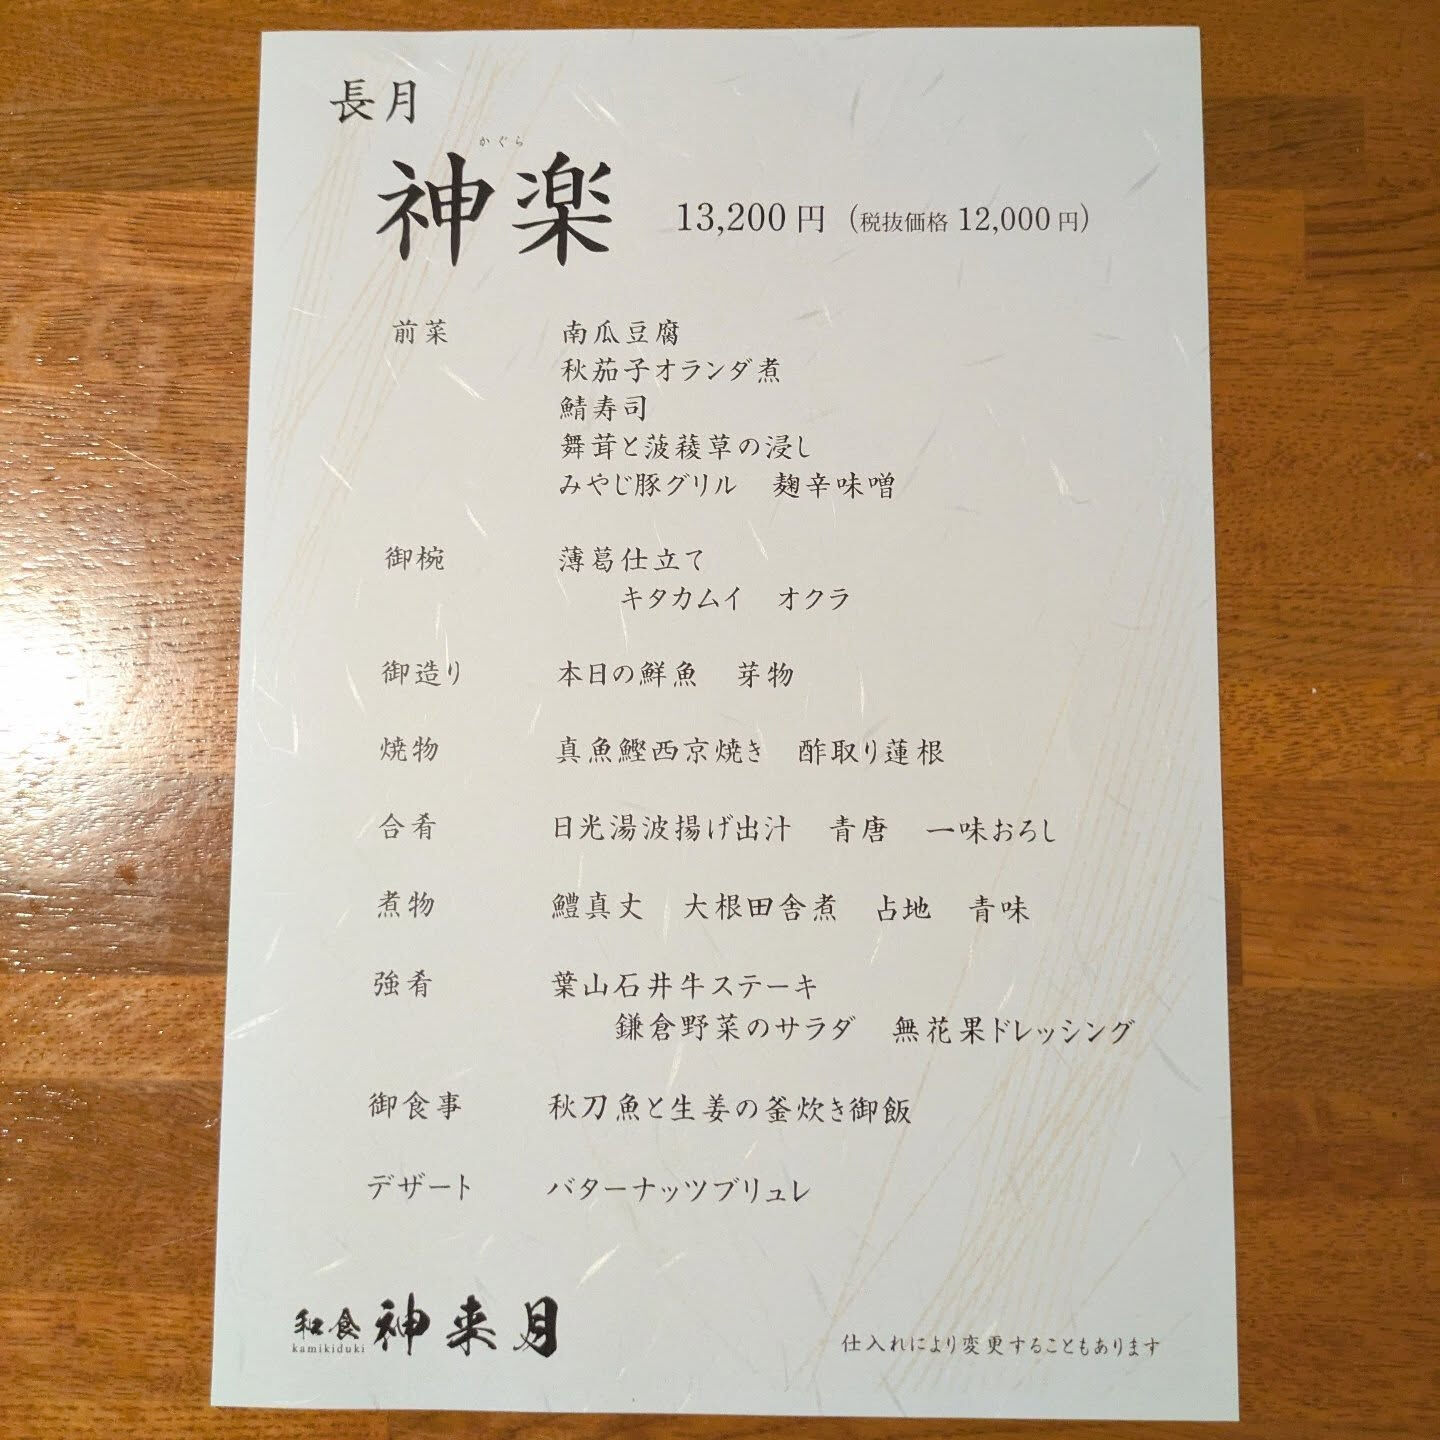 長月
かぐら
神楽 13,200円（税抜価格 12,000円）
前菜 南瓜豆腐
秋茄子オランダ煮
鯖寿司
舞茸と菠薐草の浸し
みやじ豚グリル 麹辛味噌
御椀 薄葛仕立て
キタカムイ オクラ
御造り 本日の鮮魚 芽物
焼物 真魚鰹西京焼き 酢取り蓮根
合肴 日光湯波揚げ出汁 青唐 一味おろし
煮物 鱧真丈 大根田舎煮 占地 青味
強肴 葉山石井牛ステーキ
鎌倉野菜のサラダ 無花果ドレッシング
御食事 秋刀魚と生姜の釜炊き御飯
デザート バターナッツブリュレ
和食 神来月
kamikiduki
仕入れにより変更することもあります